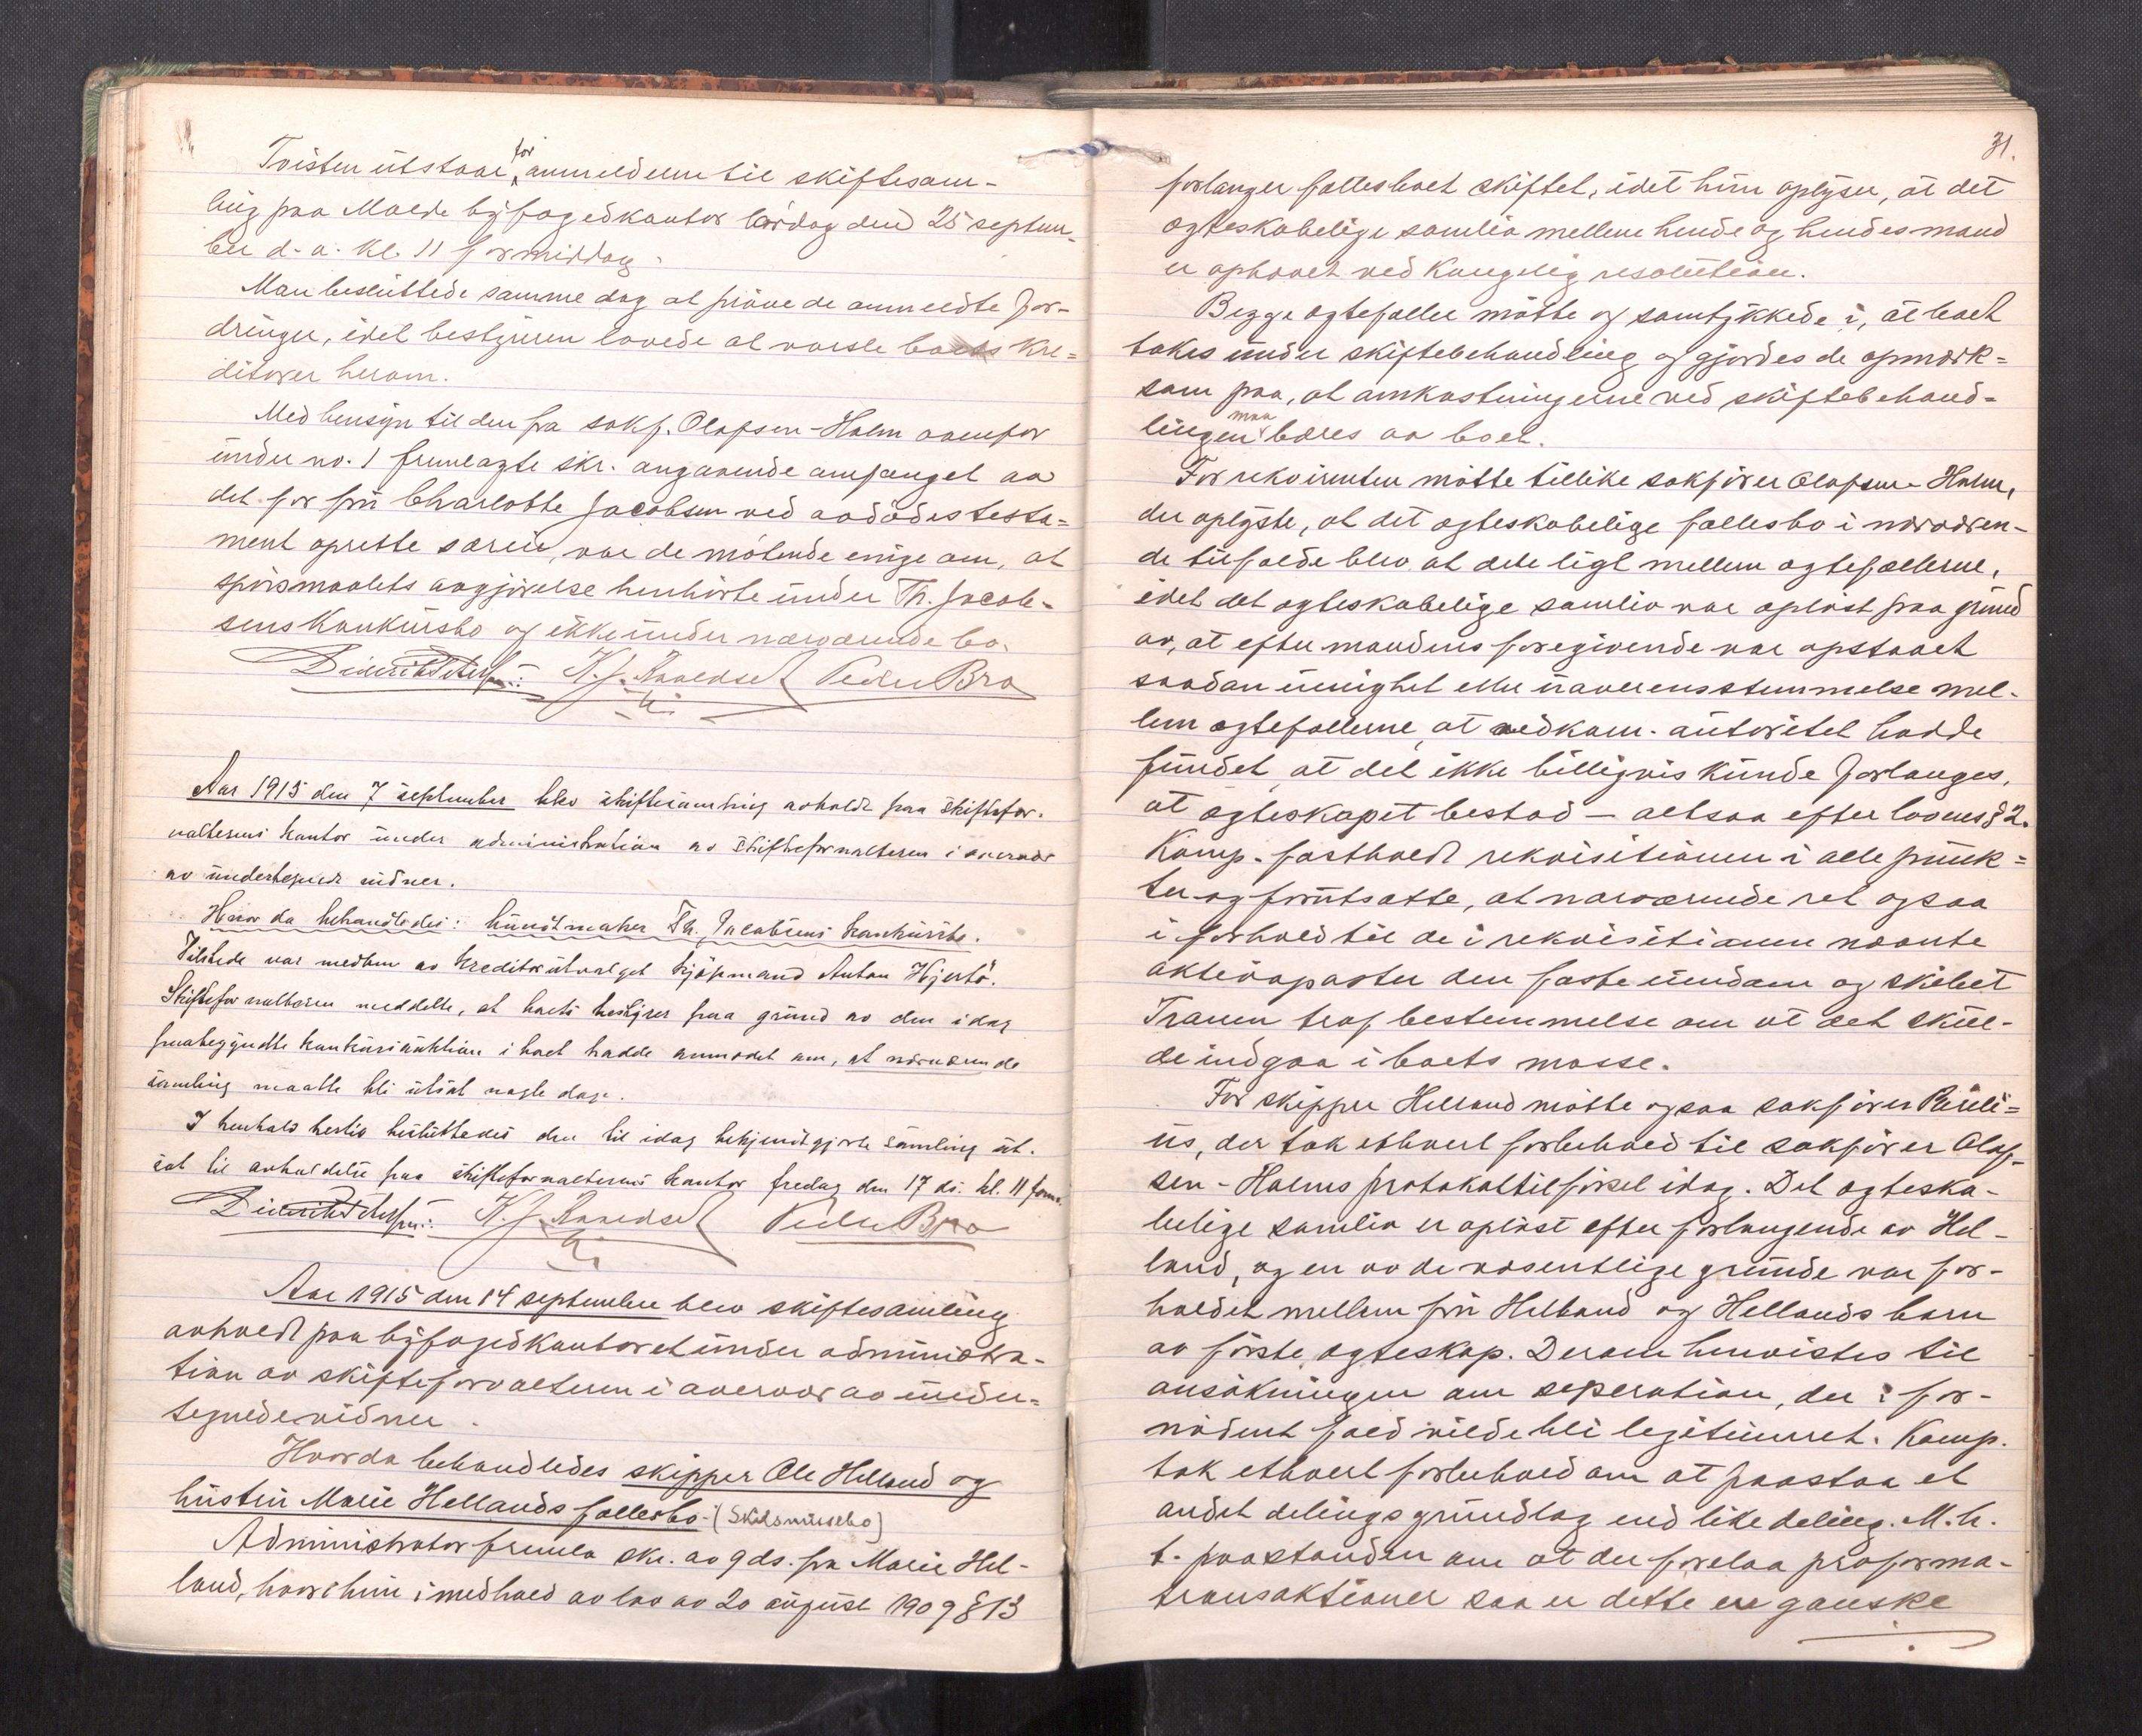 Tvisten utstaar for anmeldelse til skiftesam-
ling paa Molde byfogedkontor lørdag den 25 septem-
ber d.a. kl. 11 formiddag.
Man besluttede samme dag at prøve de anmeldte for-
dringer, idet bestyreren lovede at varsle boets kre=
ditorer herom.
Med hensyn til den fra sakf. Olafsen-Holm ovenfor
under no. 1 fremlagte skr. angaaende omfanget av
det for fru Charlotte Jacobsen ved avdødes testa=
ment oprette særeie, var de møtende enige om, at
spørsmaalets avgjørelse henhørte under Th. Jacob-
sens konkursbo og ikke under nærværende bo.
Peder Bro
Aar 1915 den 7 september blev skiftesamling avholdt paa skiftefor-
valterens kontor under administration av skifteforvalteren i overvær
av undertegnede vidner.
Hvor da behandledes: bundtmaker Th. Jacobsens konkursbo.
Tilstede var medlem av kreditorutvalget kjøpmand Anton Hjertø.
Skifteforvalteren meddelte, at boets bestyrer paa grund av den idag
paabegyndte konkursauktion i boet hadde anmodet om, at nærværende
samling maatte bli utsat nogle dage.
I henhold hertil besluttedes den til idag bekjendtgjorte samling ut-
sat til avholdelse paa skifteforvalterens kontor fredag den 17 ds. kl. 11 form.
Peder Bro
Aar 1915 den 14 september blev skiftesamling
avholdt paa byfogedkontoret under administra-
tion av skifteforvalteren i overvær av under=
tegnede vidner.
Hvor da behandledes skipper Ole Helland og
hustru Marie Hellands fællesbo. (Skilsmissebo)
Administrator fremla skr. av 9 ds. fra Marie Hel-
land, hvori hun i medhold av lov av 20 august 1909 § 13
31.
forlanger fællesboet skiftet, idet hun oplyser, at det
egteskabelige samliv mellem hende og hendes mand
er ophævet ved kongelig resolution.
Begge egtefæller møtte og samtykkede i, at boet
tokes under skiftebehandling og gjordes de opmerk=
som paa, at omkostningerne ved skiftebehand-
lingen maa bæres av boet.
For rekvirenten møtte tillike sakfører Olafsen-Holm,
der oplyste, at det egteskabelige fællesbo i nærværen-
de tilfælde blev at dele likt mellem egtefællerne,
idet det egteskabelige samliv var opløst paa grund
av, at efter mandens foregivende var opstaaet
saadan uenighet eller uoverensstemmelse mel-
lem egtefællerne, at vedkom. autoritet hadde
fundet, at det ikke billigvis kunde forlanges,
at egteskapet bestod – altsaa efter lovens § 2.
Komp. fastholdt rekvisitionen i alle punk=
ter og forutsatte, at nærværende ret ogsaa
i forhold til de i rekvisitionen nævnte
aktivaposter den faste eiendom og skibet
Tranen traf bestemmelse om at det skul-
de indgaa i boets masse.
For skipper Helland møtte ogsaa sakfører Bereli=
us, der tok ethvert forbehold til sakfører Olaf-
sen-Holms protokoltilførsel idag. Det egteska-
belige samliv er opløst efter forlangende av Hel-
land, og en av de væsentlige grunde var for-
holdet mellem fru Helland og Hellands barn
av første egteskap. Derom henvistes til
ansøkningen om seperation, der i for-
nødent fald vilde bli legitimeret. Komp.
tok ethvert forbehold om at paastaa et
andet delingsgrundlag end likedeling. M.h.
t. paastanden om at der forelaa proforma-
transaktioner saa er dette en ganske